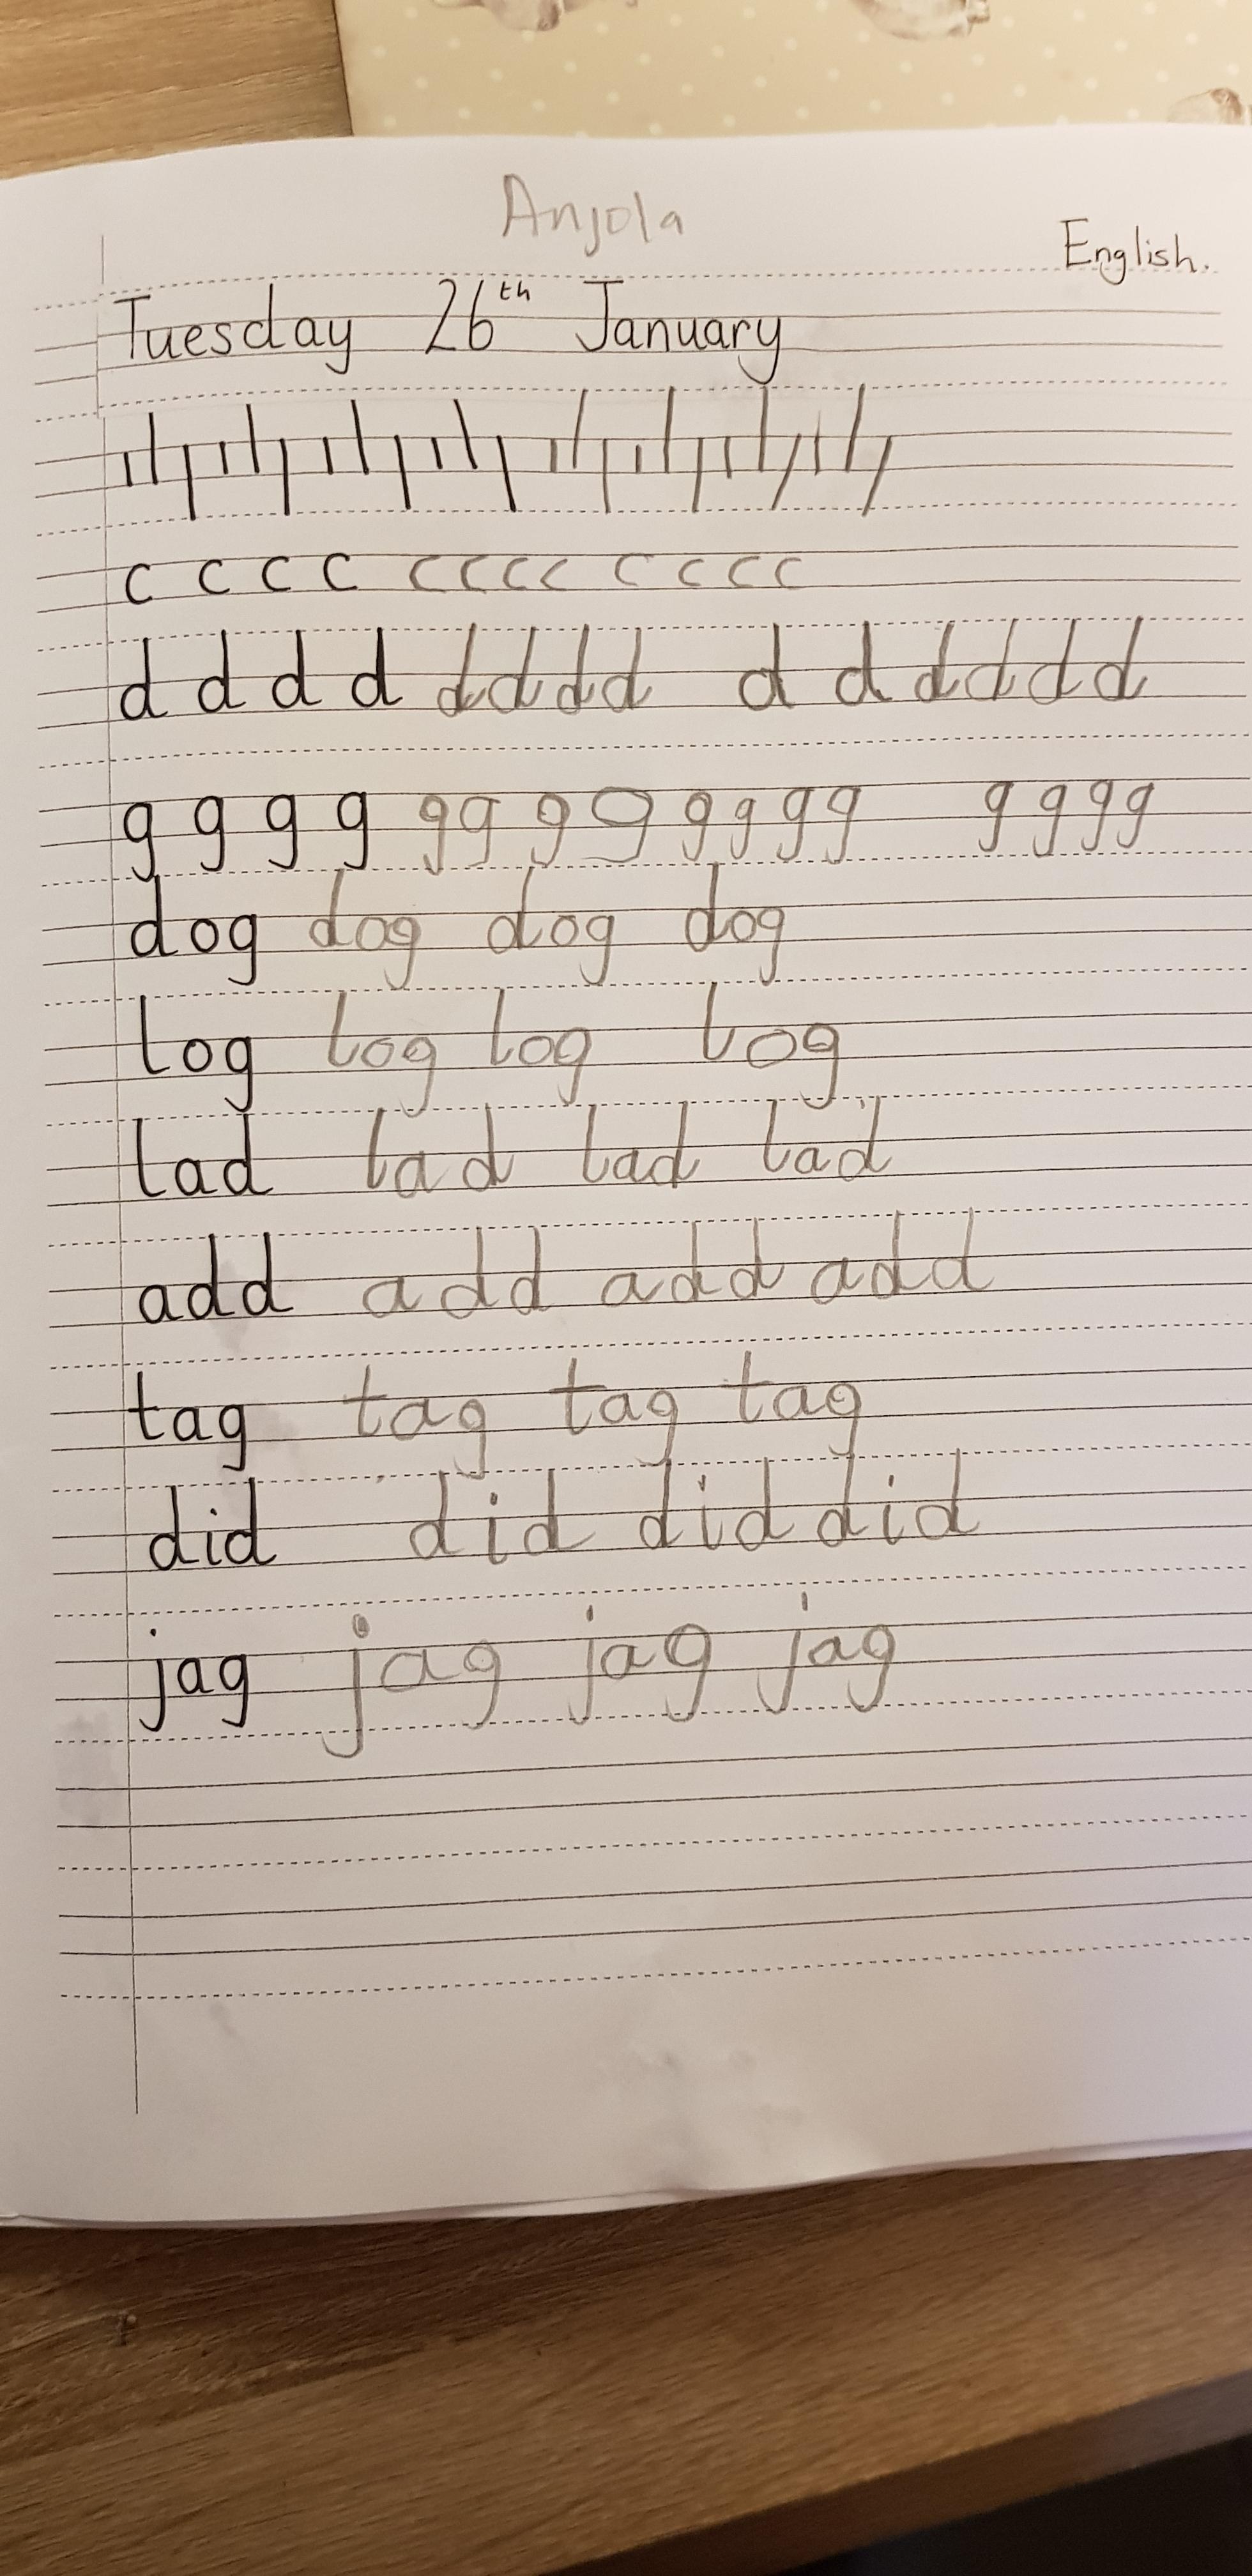 Anjola
English.
Tuesday 26th January
c c c c c c c c c c c c
d d d d d d d d d d d d d d
g g g g g g g g g g g g g g g g
dog dog dog dog
log log log log
lad lad lad lad
add add add add
tag tag tag tag
did did did did
jag jag jag jag